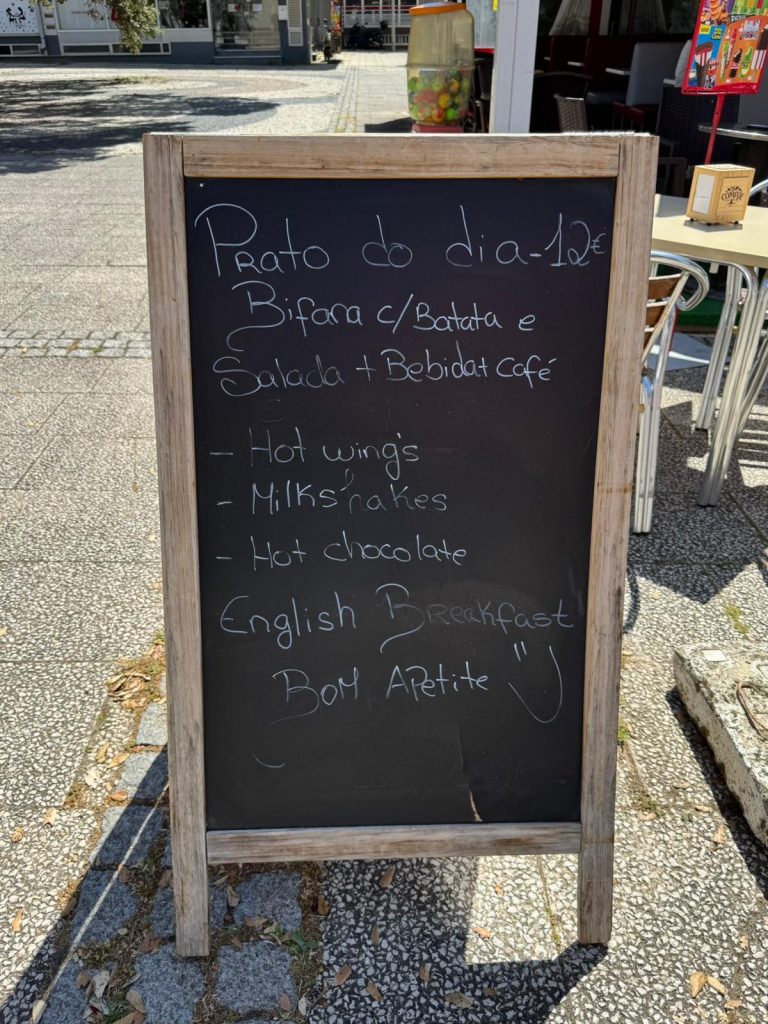 Prato do dia - 12€
Bifana c/ Batata e
Salada + Bebida + café
- Hot wing's
- Milkshakes
- Hot chocolate
English Breakfast
Bom Apetite